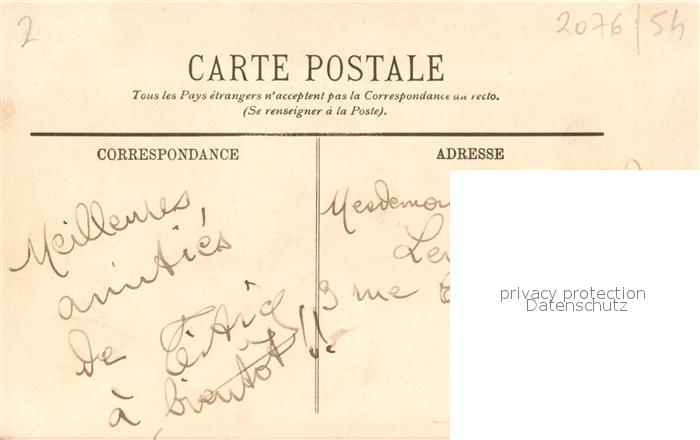 2
2076/54
CARTE POSTALE
Tous les Pays étrangers n'acceptent pas la Correspondance au recto.
(Se renseigner à la Poste).
CORRESPONDANCE
ADRESSE
Meilleures
amitiés
de
à bientôt !!
Mesdemoi
3 rue
privacy protection
Datenschutz